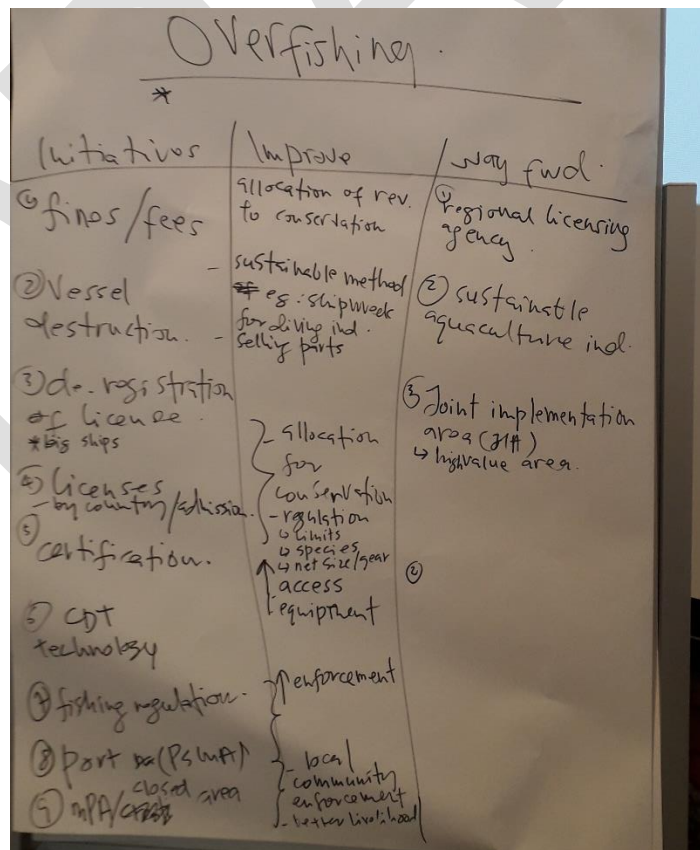 Overfishing.
*
Initiatives
① fines/fees
② Vessel
destruction.
③ de-registration
of license.
* big ships
④ Licenses
- by country/admission.
⑤ certification.
⑥ CDT
technology
⑦ fishing regulation.
⑧ port (PSMA)
⑨ MPA/closed area
Improve
allocation of rev.
to conservation
- sustainable method
eg: shipwreck
for diving ind.
- selling parts
- allocation
for
conservation
- regulation
↳ limits
↳ species
↳ net size/gear
↑ access
equipment
↑ enforcement
- local
community
enforcement
- better livelihood
way fwd.
① regional licensing
agency.
② sustainable
aquaculture ind.
③ Joint implementation
area (JIA)
↳ high value area.
②